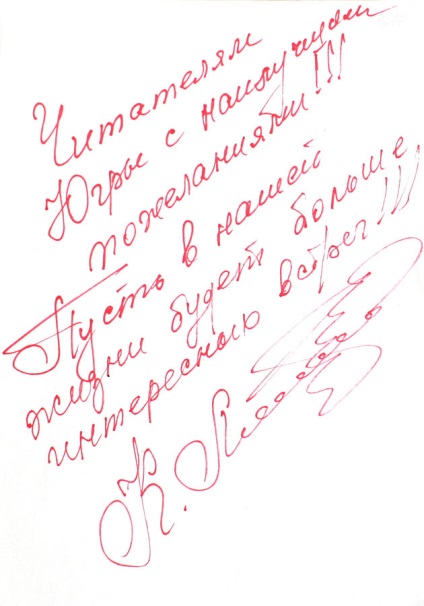 Читателям
Югры с наилучшими
пожеланиями!!!
Пусть в нашей
жизни будет больше
интересных встреч!!!
К.